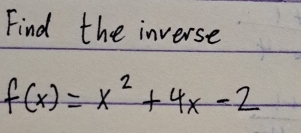 Find the inverse
f(x) = x² + 4x - 2